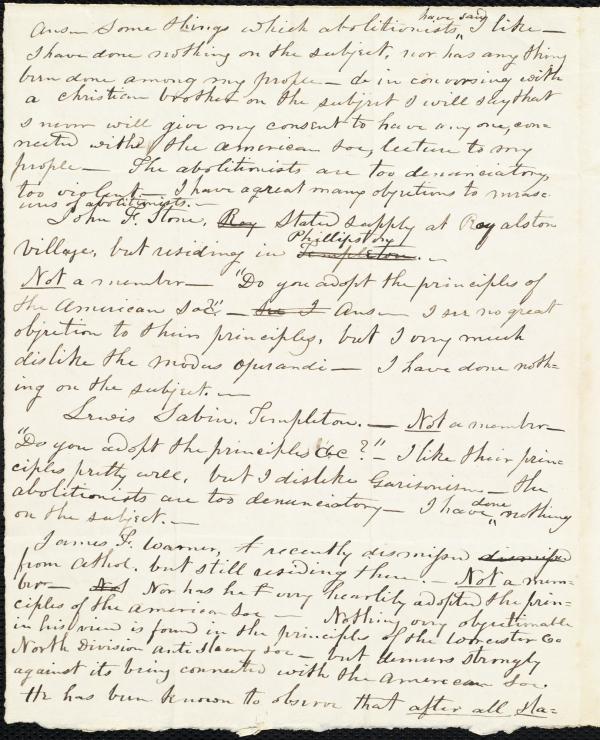 Ans— Some things which abolitionists have said, I like—
I have done nothing on the subject, nor has any thing
been done among my people— & in conversing with
a christian brother on the subject I will say that
I never will give my consent to have any one, con=
nected with the American Soc, lecture to my
people— The abolitionists are too denunciatory,
too violent.— I have a great many objections to meas=
ures of abolitionists.—
John F. Stone, Roy Stated supply at Royalston
village, but residing in Templeton Phillipston.—
Not a member— "Do you adopt the principles of
the American Soc?"— See I Ans— I see no great
objection to their principles, but I very much
dislike the modus operandi— I have done noth=
ing on the subject.—
Lewis Sabin, Templeton.— Not a member—
"Do you adopt the principles &c?"— I like their prin=
ciples pretty well, but I dislike Garisonism— the
abolitionists are too denunciatory— I have done nothing
on the subject.—
James F. Warner, & recently dismissed dismissed
from Athol, but still residing there.— Not a mem=
ber— Not Nor has he very heartily adopted the prin=
ciples of the American Soc— Nothing very objectionable
in his view is found in the principles of the Worcester Co
North Division anti slavery soc— but demurs strongly
against its being connected with the American Soc.
He has been known to observe that after all, sla=